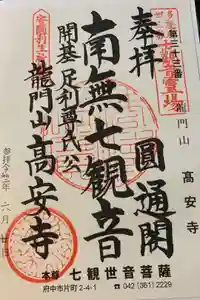 奉拝
第三十三番
龍門山
高安寺
圓通閣
南無七観音
開基足利尊氏公
龍門山高安寺
参拝令和二年六月廿日
本尊 七観世音菩薩
府中市片町2-4-1 ☎ 042(361)2229